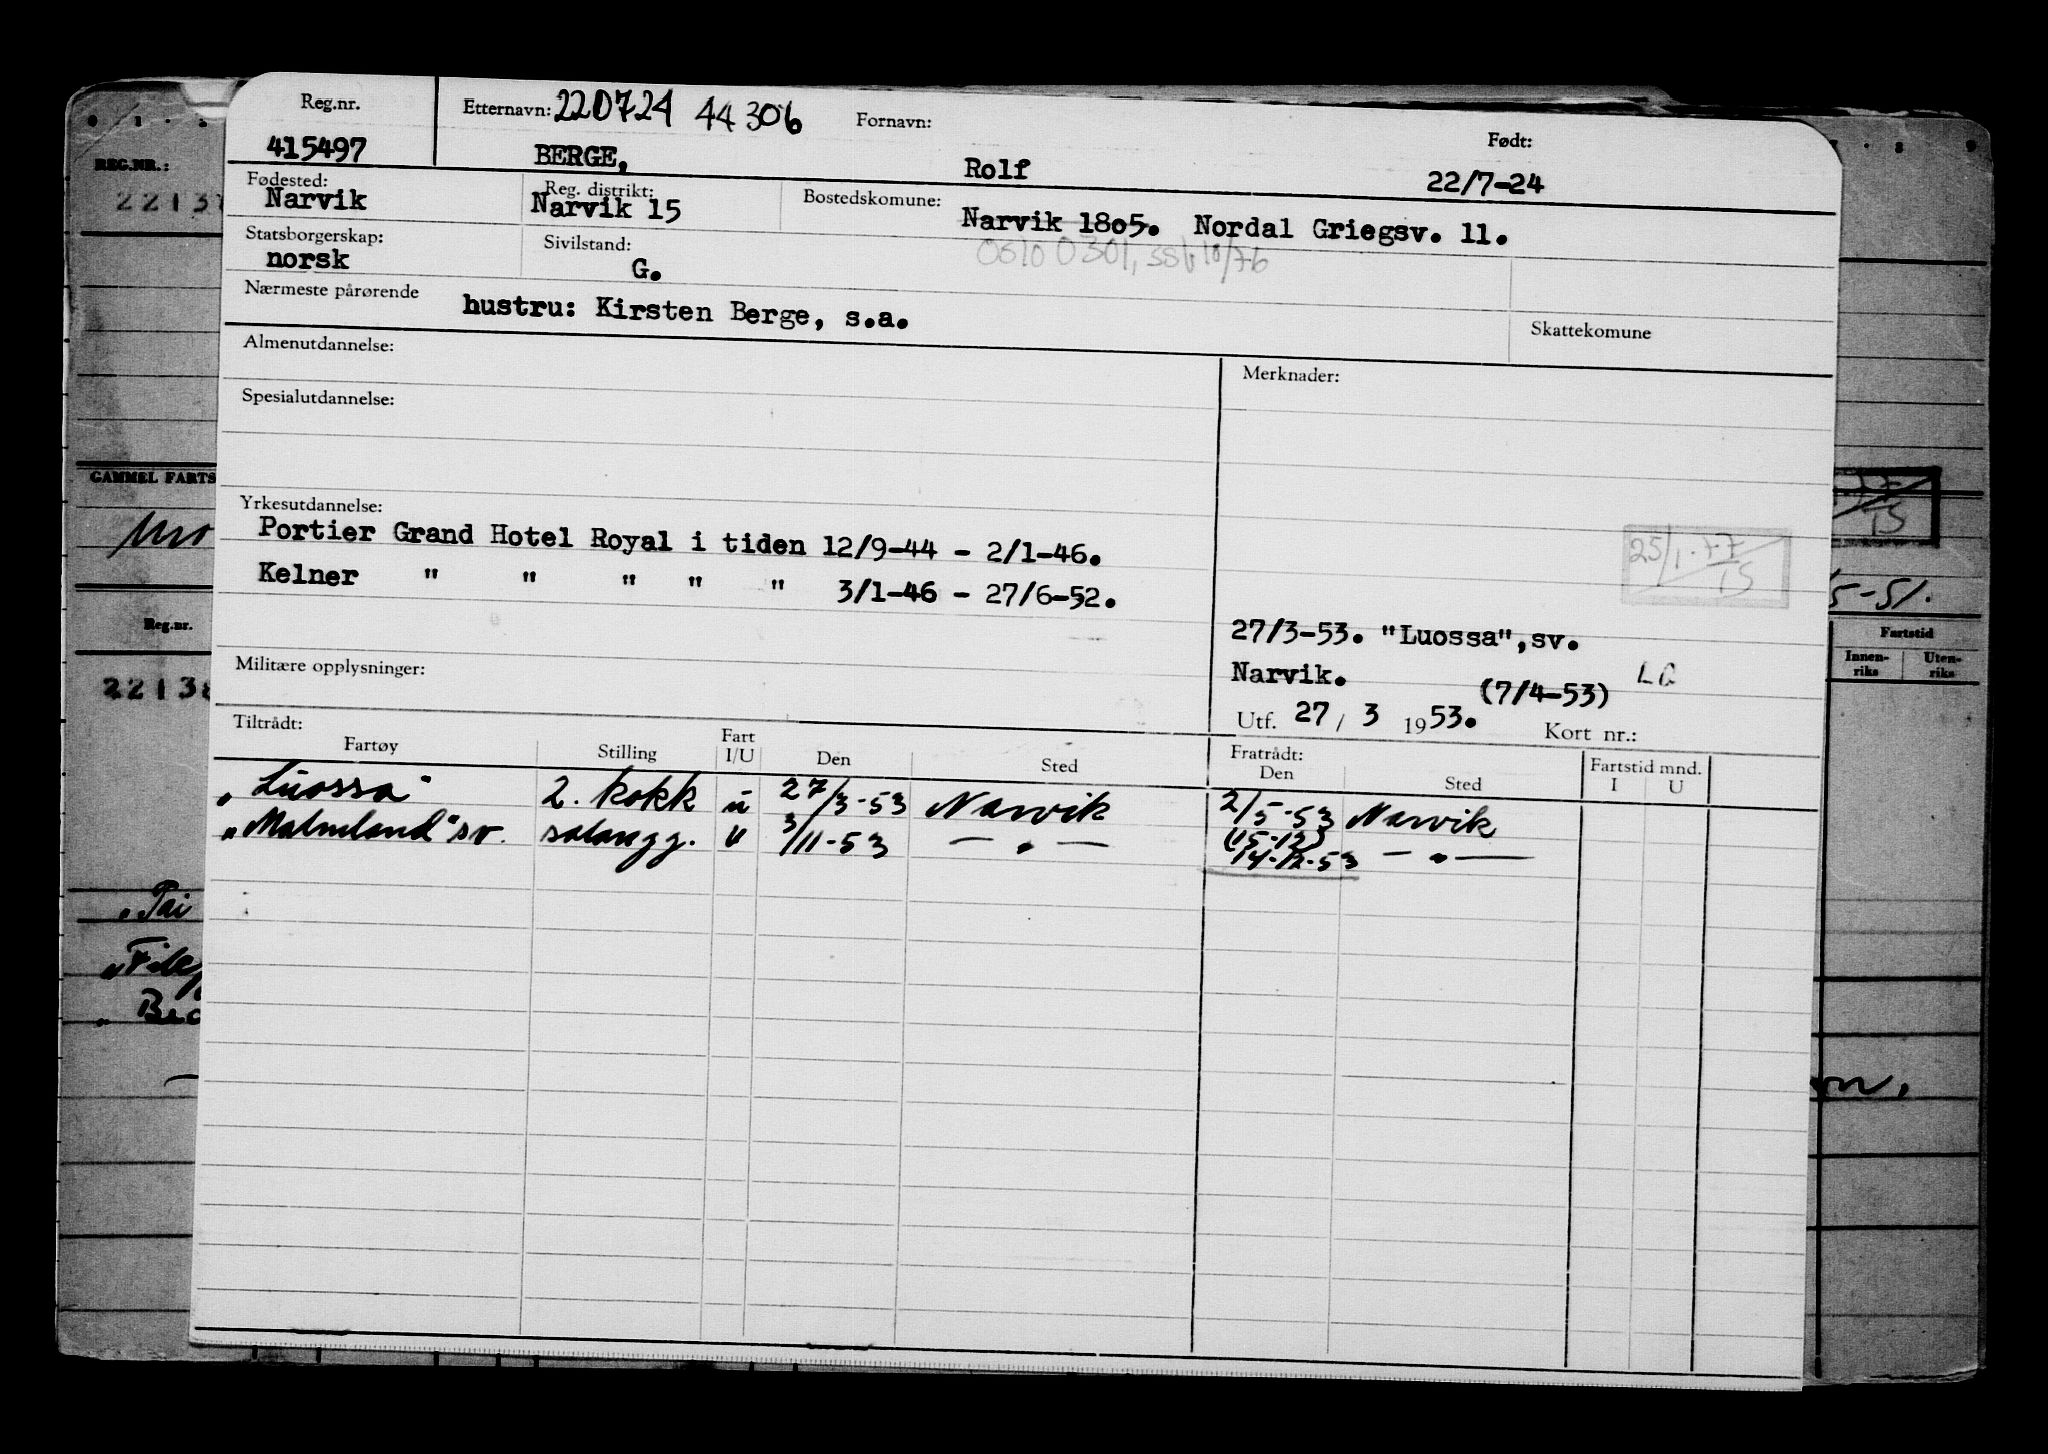 Reg.nr. Etternavn: 220724 44306 Fornavn: Født:
415497 BERGE, Rolf 22/7-24
Fødested: Reg. distrikt: Bostedskomune:
Narvik Narvik 15 Narvik 1805. Nordal Griegsv. 11.
Statsborgerskap: Sivilstand: Oslo 0301, ssb 18/76
norsk G.
Nærmeste pårørende hustru: Kirsten Berge, s.a.
Skattekomune
Almenutdannelse: Merknader:
Spesialutdannelse:
Yrkesutdannelse:
Portier Grand Hotel Royal i tiden 12/9-44 - 2/1-46.
Kelner " " " " " 3/1-46 - 27/6-52.
25/1.77
15
27/3-53. "Luossa",sv.
Narvik. (7/4-53)
Militære opplysninger:
Utf. 27 / 3 1953. Kort nr.:
Tiltrådt: Fratrådt:
Fartøy Stilling Fart I/U Den Sted Den Sted Fartstid mnd. I U
"Luossa" 2. kokk u 27/3-53 Narvik 2/5-53 Narvik
"Malmland" sv. salongg. u 3/11-53 — " — (15-12) 14-12-53 — " —
REG.NR.:
2213
GAMMEL FARTS
Reg.nr.
2213
5-51.
Fartstid
Innen-riks Uten-riks
15